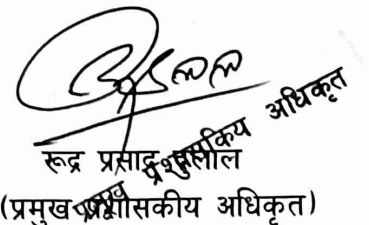 रूद्र प्रसाद
(प्रमुख प्रशासकीय अधिकृत)
प्रमुख प्रशासकिय अधिकृत